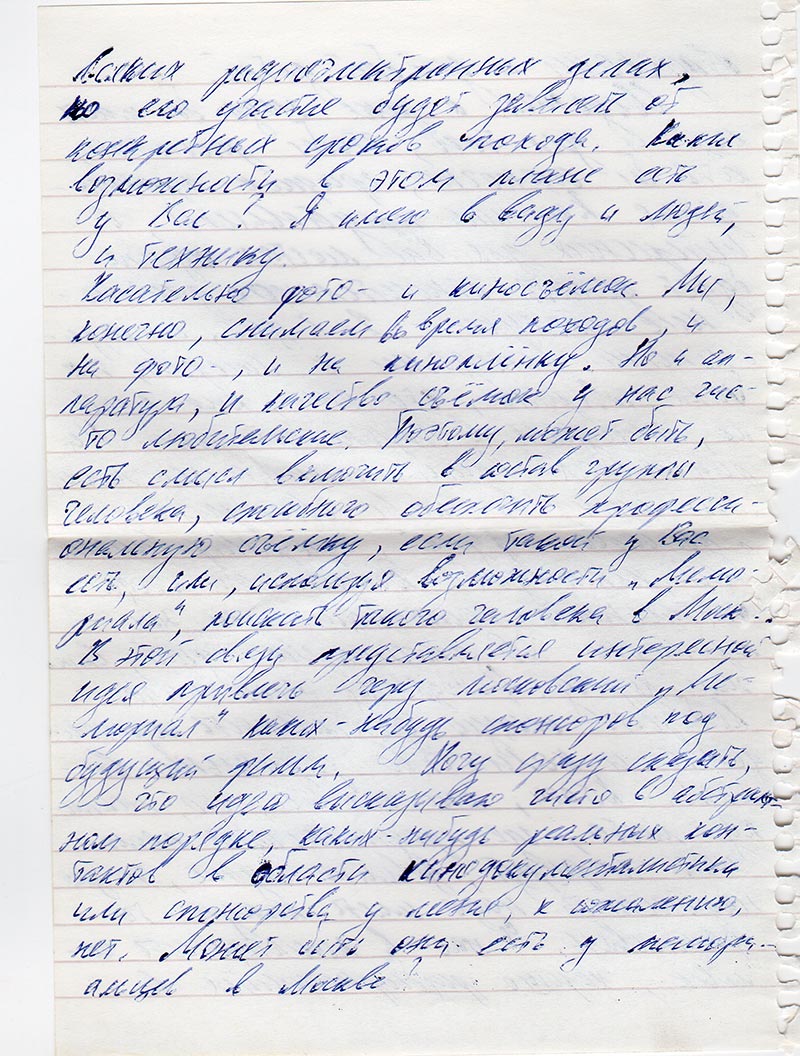 всяких радиоэлектронных делах,
но его участие будет зависеть от
конкретных сроков похода. Какие
возможности в этом плане есть
у Вас? Я имею в виду и людей,
и технику.
Касательно фото- и киносъёмок. Мы,
конечно, снимаем во время походов, и
на фото-, и на киноплёнку. Но и ап-
паратура, и качество съёмок у нас чис-
то любительские. Поэтому, может быть,
есть смысл включить в состав группы
человека, способного обеспечить професси-
ональную съёмку, если такой у Вас
есть, или, используя возможности „Мемо-
риала", поискать такого человека в Мск..
В этой связи представляется интересной
идея привлечь через московский „Ме-
мориал" каких-нибудь спонсоров под
будущий фильм. Хочу сразу сказать,
что идею высказываю чисто в абстракт-
ном порядке, каких-нибудь реальных кон-
тактов в области кинодокументалистики
или спонсорства у меня, к сожалению,
нет. Может быть они есть у мемори-
альцев в Москве?